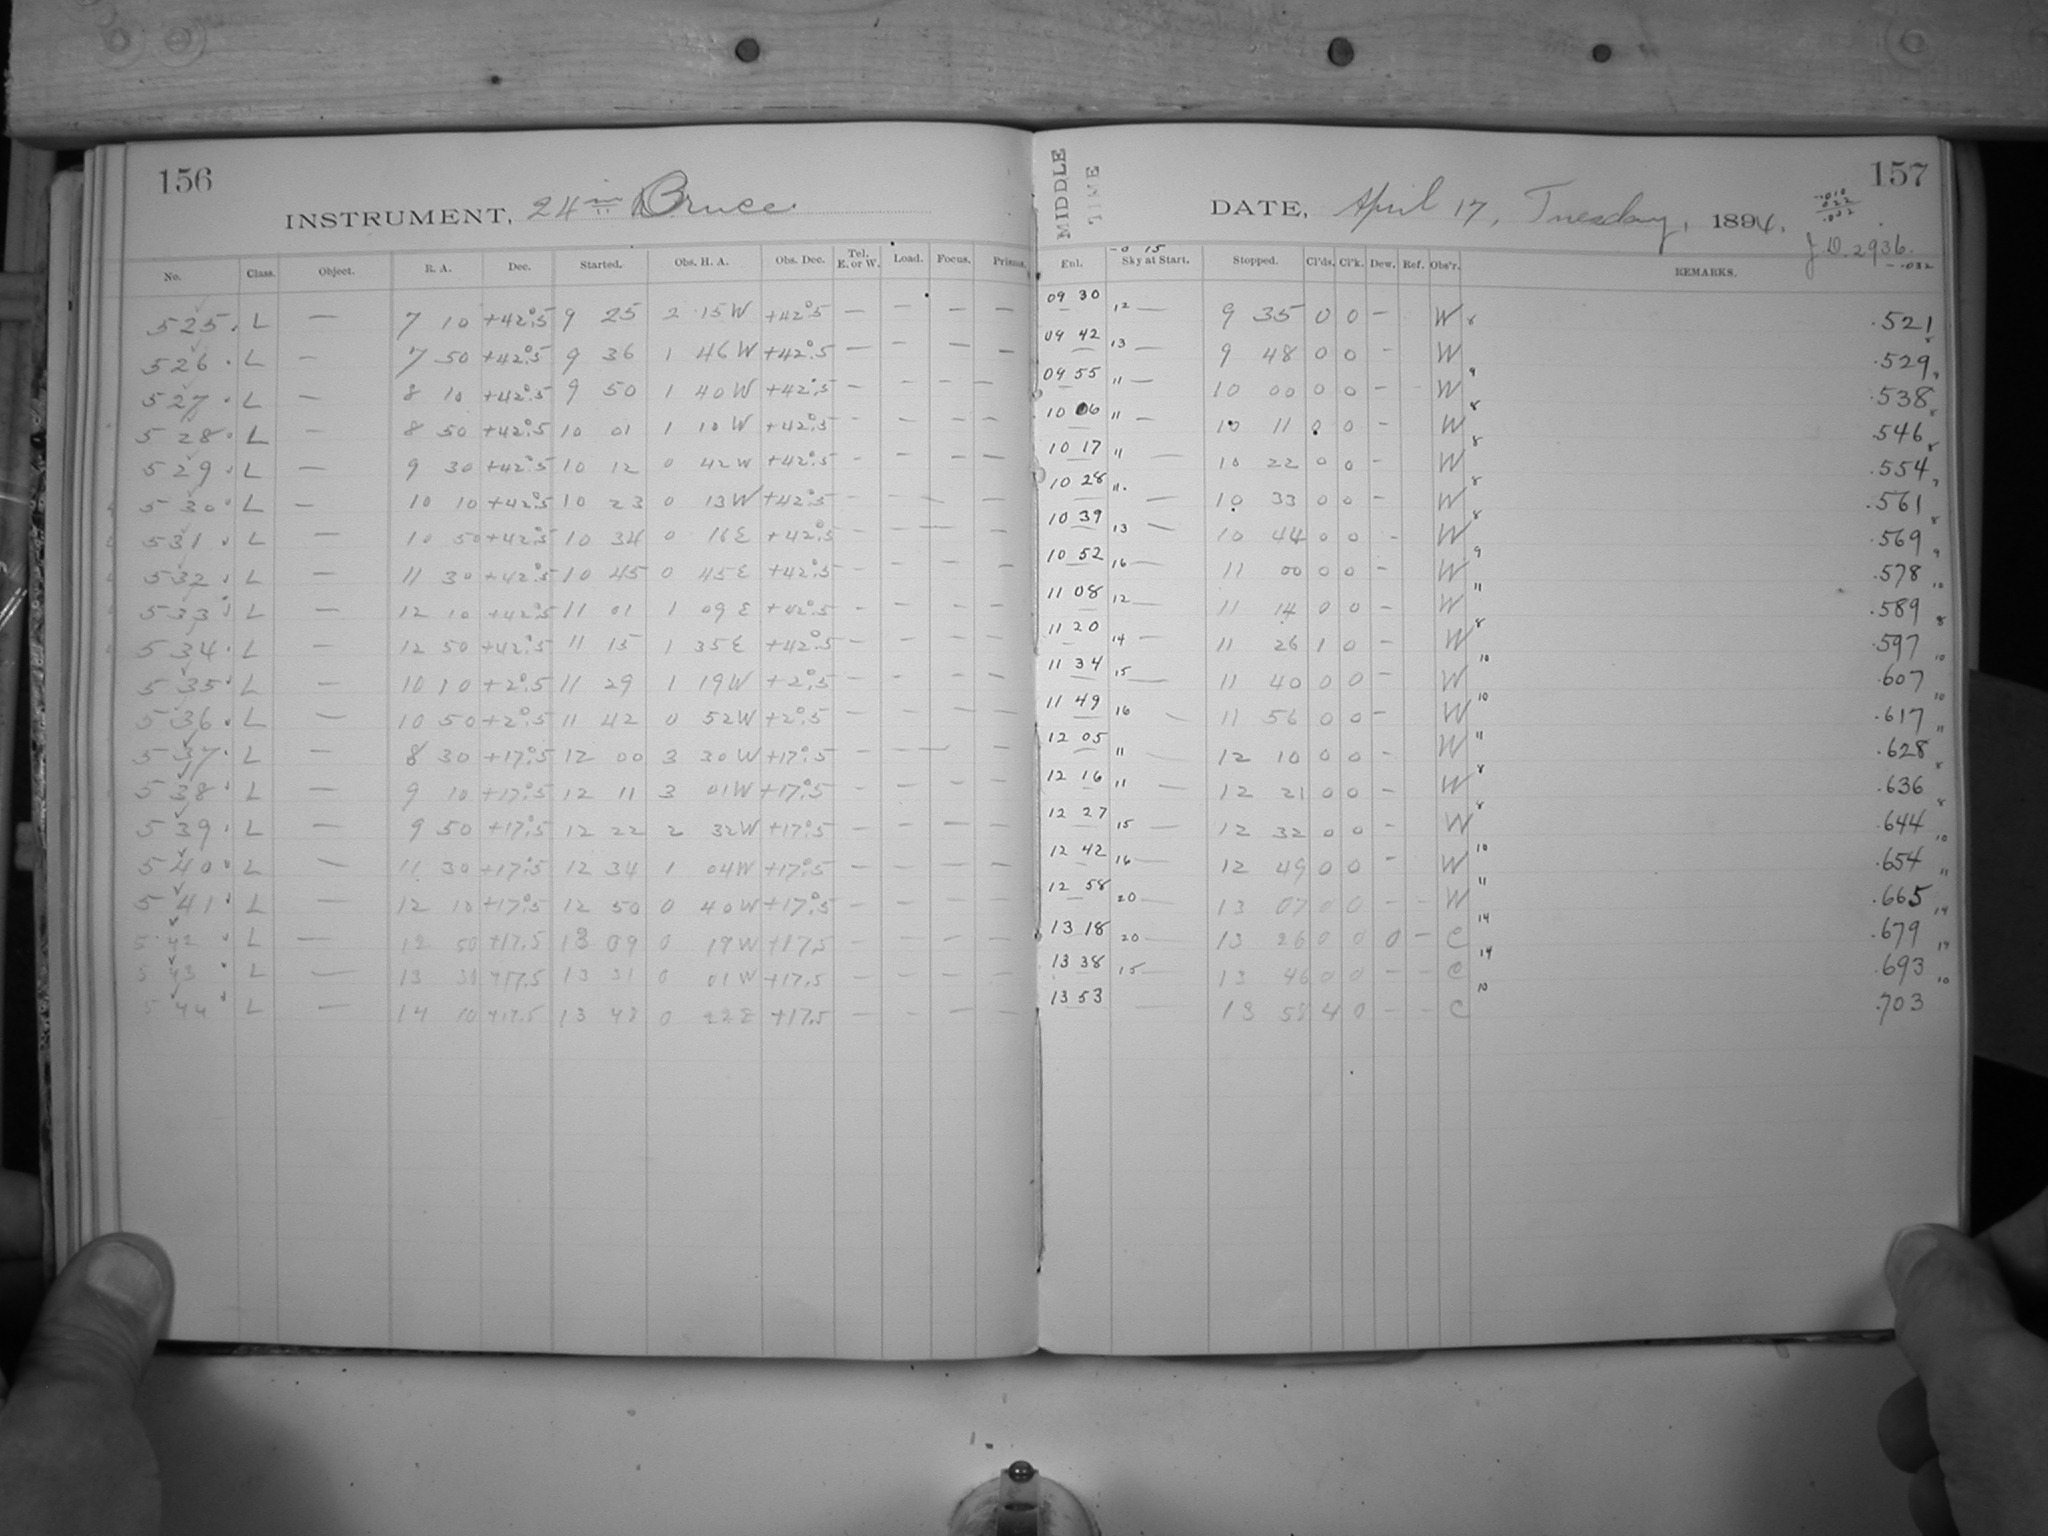 156
INSTRUMENT, 24 in Bruce
No. Class. Object. R. A. Dec. Started. Obs. H. A. Obs. Dec. Tel. E. or W. Load. Focus. Prisms.
525 L — 7 10 +42°.5 9 25 2 15 W +42°.5 — — — —
526 L — 7 50 +42°.5 9 36 1 46 W +42°.5 — — — —
527 L — 8 10 +42°.5 9 50 1 40 W +42°.5 — — — —
528 L — 8 50 +42°.5 10 01 1 10 W +42°.5 — — — —
529 L — 9 30 +42°.5 10 12 0 42 W +42°.5 — — — —
530 L — 10 10 +42°.5 10 23 0 13 W +42°.5 — — — —
531 L — 10 50 +42°.5 10 34 0 16 E +42°.5 — — — —
532 L — 11 30 +42°.5 10 45 0 45 E +42°.5 — — — —
533 L — 12 10 +42°.5 11 01 1 09 E +42°.5 — — — —
534 L — 12 50 +42°.5 11 15 1 35 E +42°.5 — — — —
535 L — 10 10 +2°.5 11 29 1 19 W +2°.5 — — — —
536 L — 10 50 +2°.5 11 42 0 52 W +2°.5 — — — —
537 L — 8 30 +17°.5 12 00 3 30 W +17°.5 — — — —
538 L — 9 10 +17°.5 12 11 3 01 W +17°.5 — — — —
539 L — 9 50 +17°.5 12 22 2 32 W +17°.5 — — — —
540 L — 11 30 +17°.5 12 34 1 04 W +17°.5 — — — —
541 L — 12 10 +17°.5 12 50 0 40 W +17°.5 — — — —
542 L — 12 50 +17.5 13 09 0 19 W +17.5 — — — —
543 L — 13 30 +17.5 13 31 0 01 W +17.5 — — — —
544 L — 14 10 +17.5 13 48 0 22 E +17.5 — — — —
MIDDLE
TIME
157
DATE, April 17, Tuesday, 1894.
-.010
.022
.032
J.D. 2936.
-.032
-0 15
Enl. Sky at Start. Stopped. Cl'ds. Cl'k. Dew. Ref. Obs'r. REMARKS.
09 30 12 — 9 35 0 0 — W 8 .521
09 42 13 — 9 48 0 0 — W 9 .529
09 55 11 — 10 00 0 0 — W 8 .538
10 06 11 — 10 11 0 0 — W 8 .546
10 17 11 — 10 22 0 0 — W 8 .554
10 28 11 — 10 33 0 0 — W 8 .561
10 39 13 — 10 44 0 0 — W 9 .569
10 52 16 — 11 00 0 0 — W 11 .578
11 08 12 — 11 14 0 0 — W 8 .589
11 20 14 — 11 26 1 0 — W 10 .597
11 34 15 — 11 40 0 0 — W 10 .607
11 49 16 — 11 56 0 0 — W 11 .617
12 05 11 — 12 10 0 0 — W 8 .628
12 16 11 — 12 21 0 0 — W 8 .636
12 27 15 — 12 32 0 0 — W 10 .644
12 42 16 — 12 49 0 0 — W 11 .654
12 58 20 — 13 07 0 0 — — W 14 .665
13 18 20 — 13 26 0 0 0 — C 14 .679
13 38 15 — 13 46 0 0 — — C 10 .693
13 53 — 13 58 4 0 — — C .703